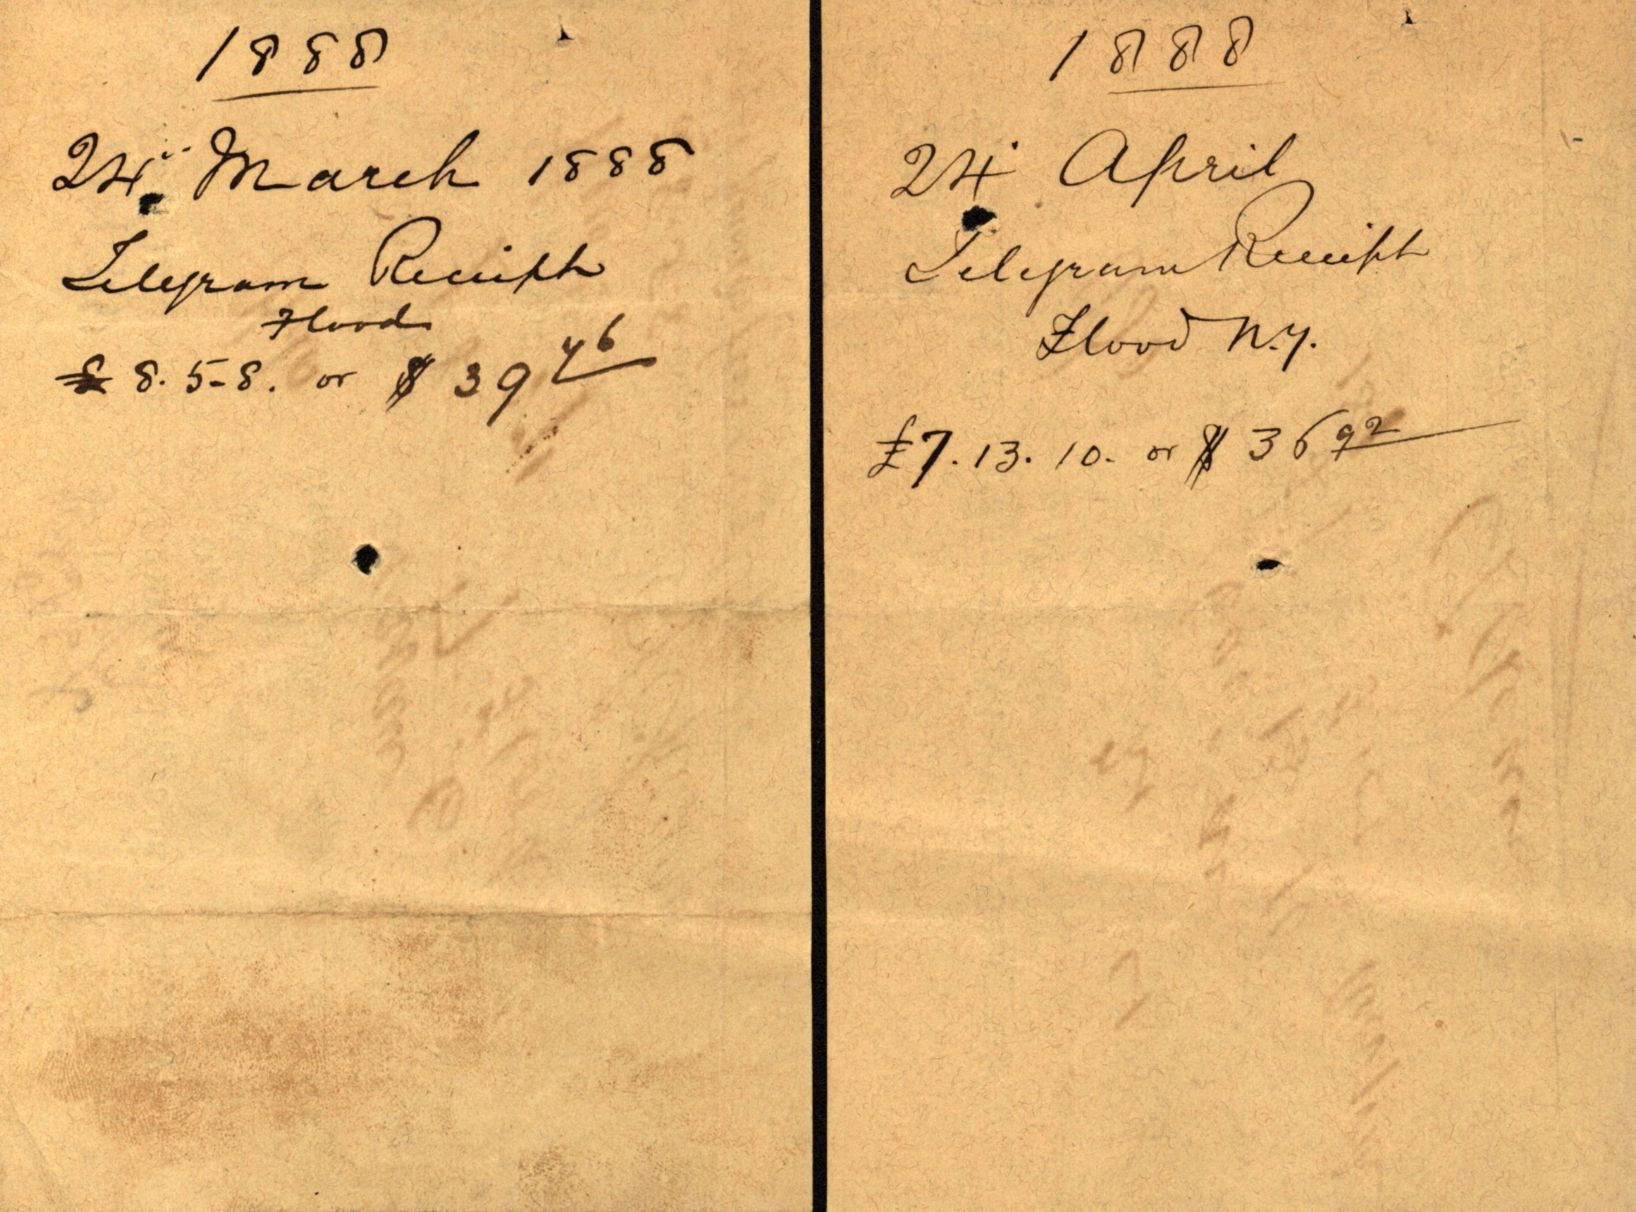 1888
24 March 1888
Telegram Receipt
Flood
£ 8. 5-8. or $ 39 46
1888
24 April
Telegram Receipt
Flood N.Y.
£7. 13. 10. or $ 36 92